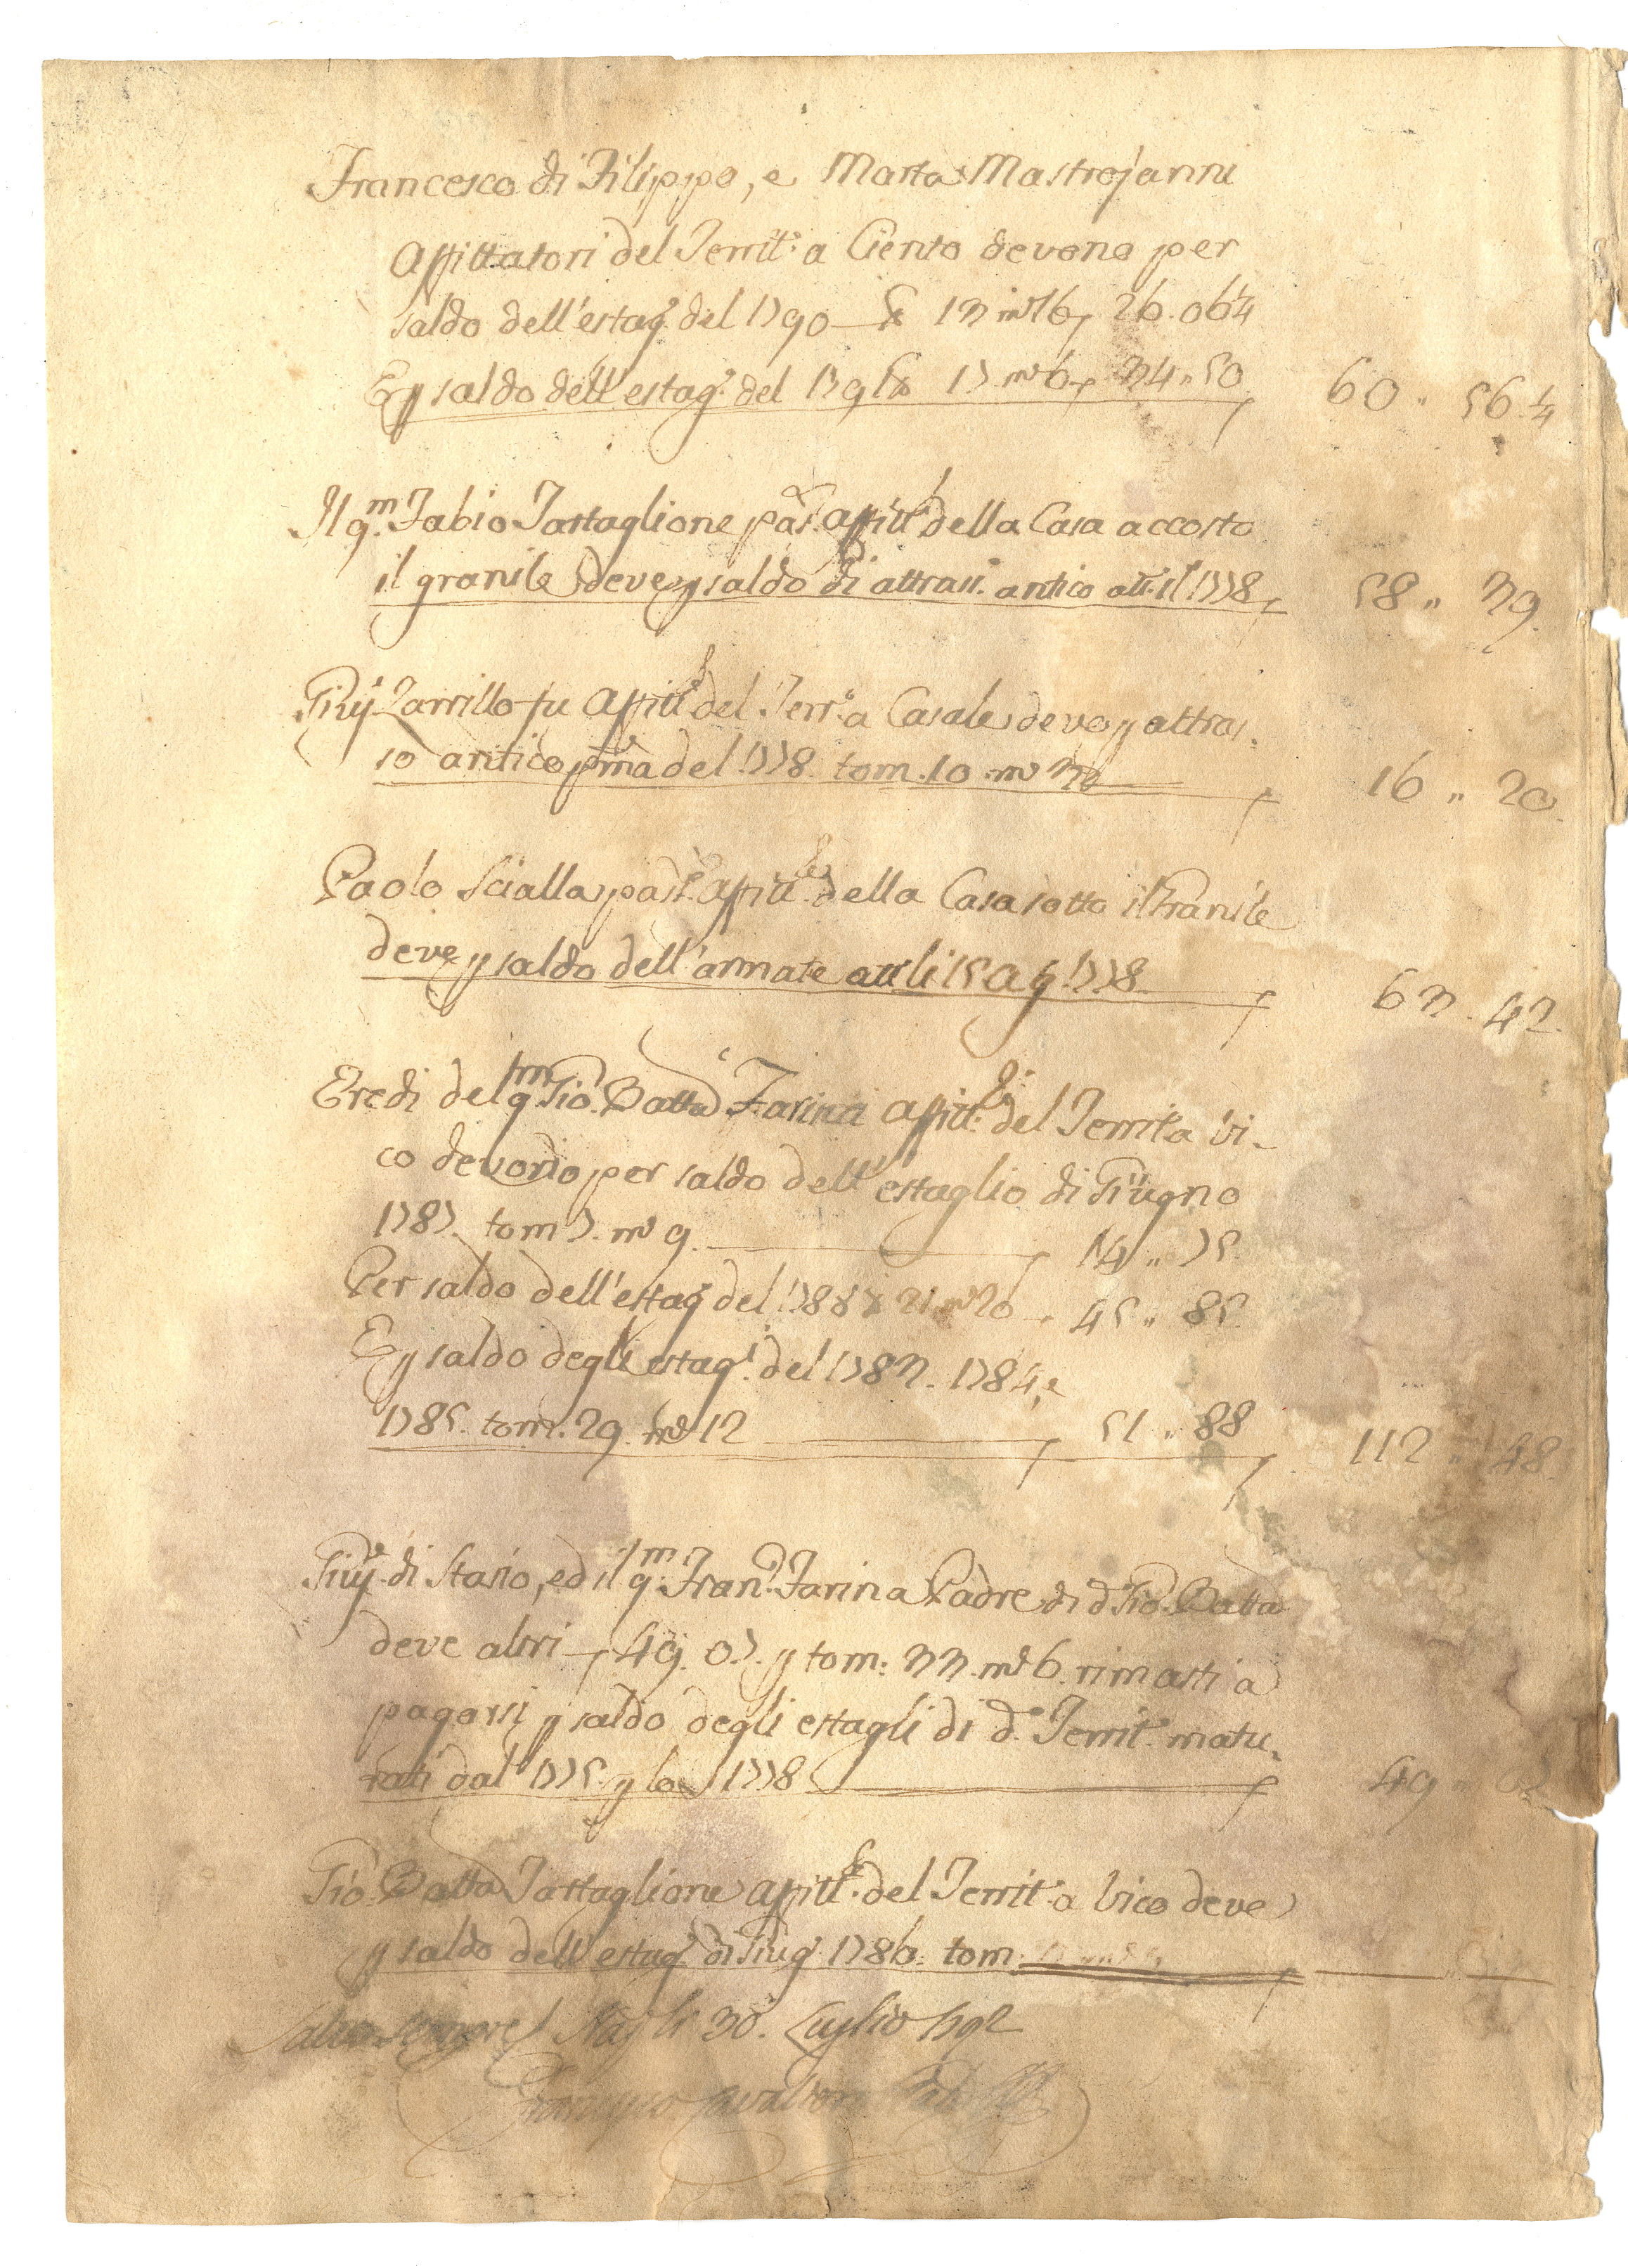 Francesco di Filippo, e Marta Mastrojanni
Affittatori del Territ.º a Ciento devono per
saldo dell'estag.º del 1790 13 m.e 16 26.06¼
E p saldo dell'estag.º del 1791 17 m.e 6 34 " 50 60 " 56¼
Il q.m Fabio Tartaglione pas.º affitt.e della Casa accosto
il granile deve p saldo di attrass.º antico att.º il 1778 58 " 39.
Giu.e Zarrillo fu affitt.e del Terr.º a Casale deve p attras.
so antico pma del 1778. tom. 10. m.e 16 " 20.
Paolo Scialla pas.º affitt.e della Casa sotto il Granile
deve p saldo dell'annate att.º li 15 Ag.º 1778 63. 42.
Eredi del q.m Gio: Batta Farina affitt.i del Territ.º a Vi-
co devono per saldo dell'estaglio di Giugno
1787. tom 7. m.e 9. 14 " 75.
Per saldo dell'estag.º del 1788 21 m.e 20 45 " 85.
E p saldo degli estag.i del 1783. 1784, e
1785. tom. 29. m.e 12 51 " 88 112 " 48.
Giu.e di Stasio, ed il q.m Fran.º Farina Padre di d. Gio: Batta
deve altri 49. 07. p tom: 33. m.e 6. rimasti a
pagarsi p saldo degli estagli di d.º Territ.º matu.
rati dal 1775. p lo 1778 49 " 07
Gio: Batta Tartaglione affitt.e del Territ.º a Vico deve
p saldo dell'estag.º di Giug.º 1786: tom.
Salvo sempre Nap.li 30. Luglio 1792
Francesco